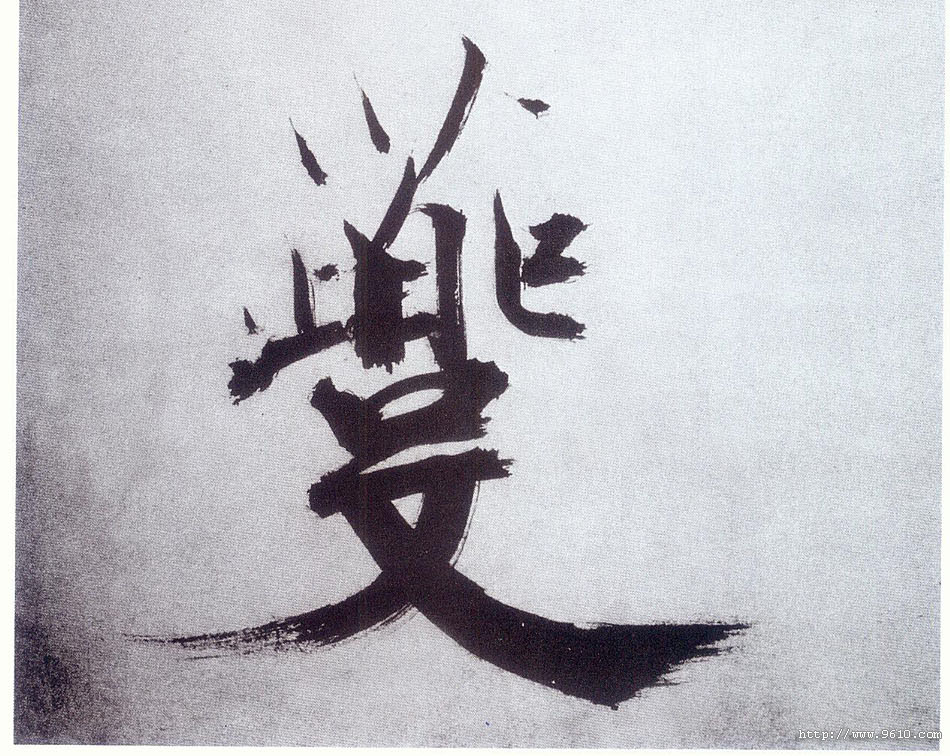 夔
http://www.9610.com